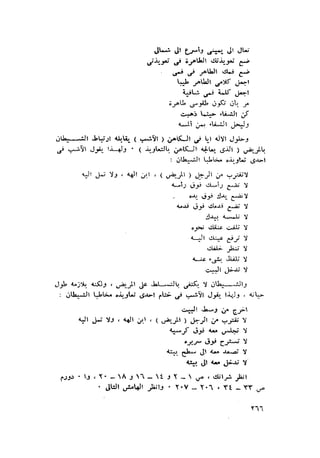 تعال الى يمينى وأسرع الى شمالى
ضع تعويذتك الطاهرة فى تعويذتى
ضع فمك الطاهر فى فمى
اجعل كلامى الطاهر طيبا
اجعل كلمة فمى شافية
مر بأن تكون طقوسى طاهرة
كن الشفاء حيثما ذهبت
وليحل الشفاء بمن ألمسه
وحلول الاله ايا فى الكاهن ( الآشب ) يقابله ارتباط الشيطان
بالمريض ( الذى يعالجه الكاهن بالتعاويذ ) ٠ ولهذا يقول الآشب فى
احدى تعاويذه مخاطبا الشيطان :
لا تقترب من الرجل ( المريض ) ، ابن الهه ، ولا تمل اليه
لا تضع رأسك فوق رأسه
لا تضع يدك فوق يده
لا تضع قدمك فوق قدمه
لا تلمسه بيدك
لا تلفت عنقك نحوه
لا ترفع عينك اليه
لا تنظر خلفك
لا تلفظ بشىء عنه
لا تدخل البيت
والشيطان لا يكتفى بالتسلط على المريض ، ولكنه يلازمه طول
حياته ، ولهذا يقول الآشب فى ختام احدى تعاويذه مخاطبا الشيطان :
اخرج من وسط البيت
لا تقترب من الرجل ( المريض ) ، ابن الهه ، ولا تمل اليه
لا تجلس معه فوق كرسيه
لا تسترح فوق سريره
لا تصعد معه الى سطح بيته
لا تدخل معه الى بيته
انظر شرانك ، ص ١ ــ ٢ و ١٤ ــ ١٦ و ١٨ ــ ٢٠ ، و١ ٠ دورم
ص ٣٣ ــ ٣٤ ، ٢٠٦ ــ ٢٠٧ ٠ وانظر الهامش التالى ٠
٢٦٦